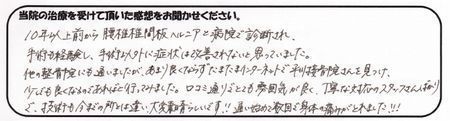 当院の治療を受けて頂いた感想をお聞かせください。
10年以上前から腰椎椎間板ヘルニアと病院で診断され、
手術も経験し、手術以外に症状は改善されないと思っていました。
他の整骨院にも通いましたが、あまり良くならずたまたまインターネットで平川接骨院さんを見つけ、
少しでも良くなるのであればと行ってみました。口コミ通りとても雰囲気が良く、丁寧な対応のスタッフさんばかり
で、技術も今までの所とは違い大変素晴らしいです!!通い始め数回で身体の痛みがとれました!!!